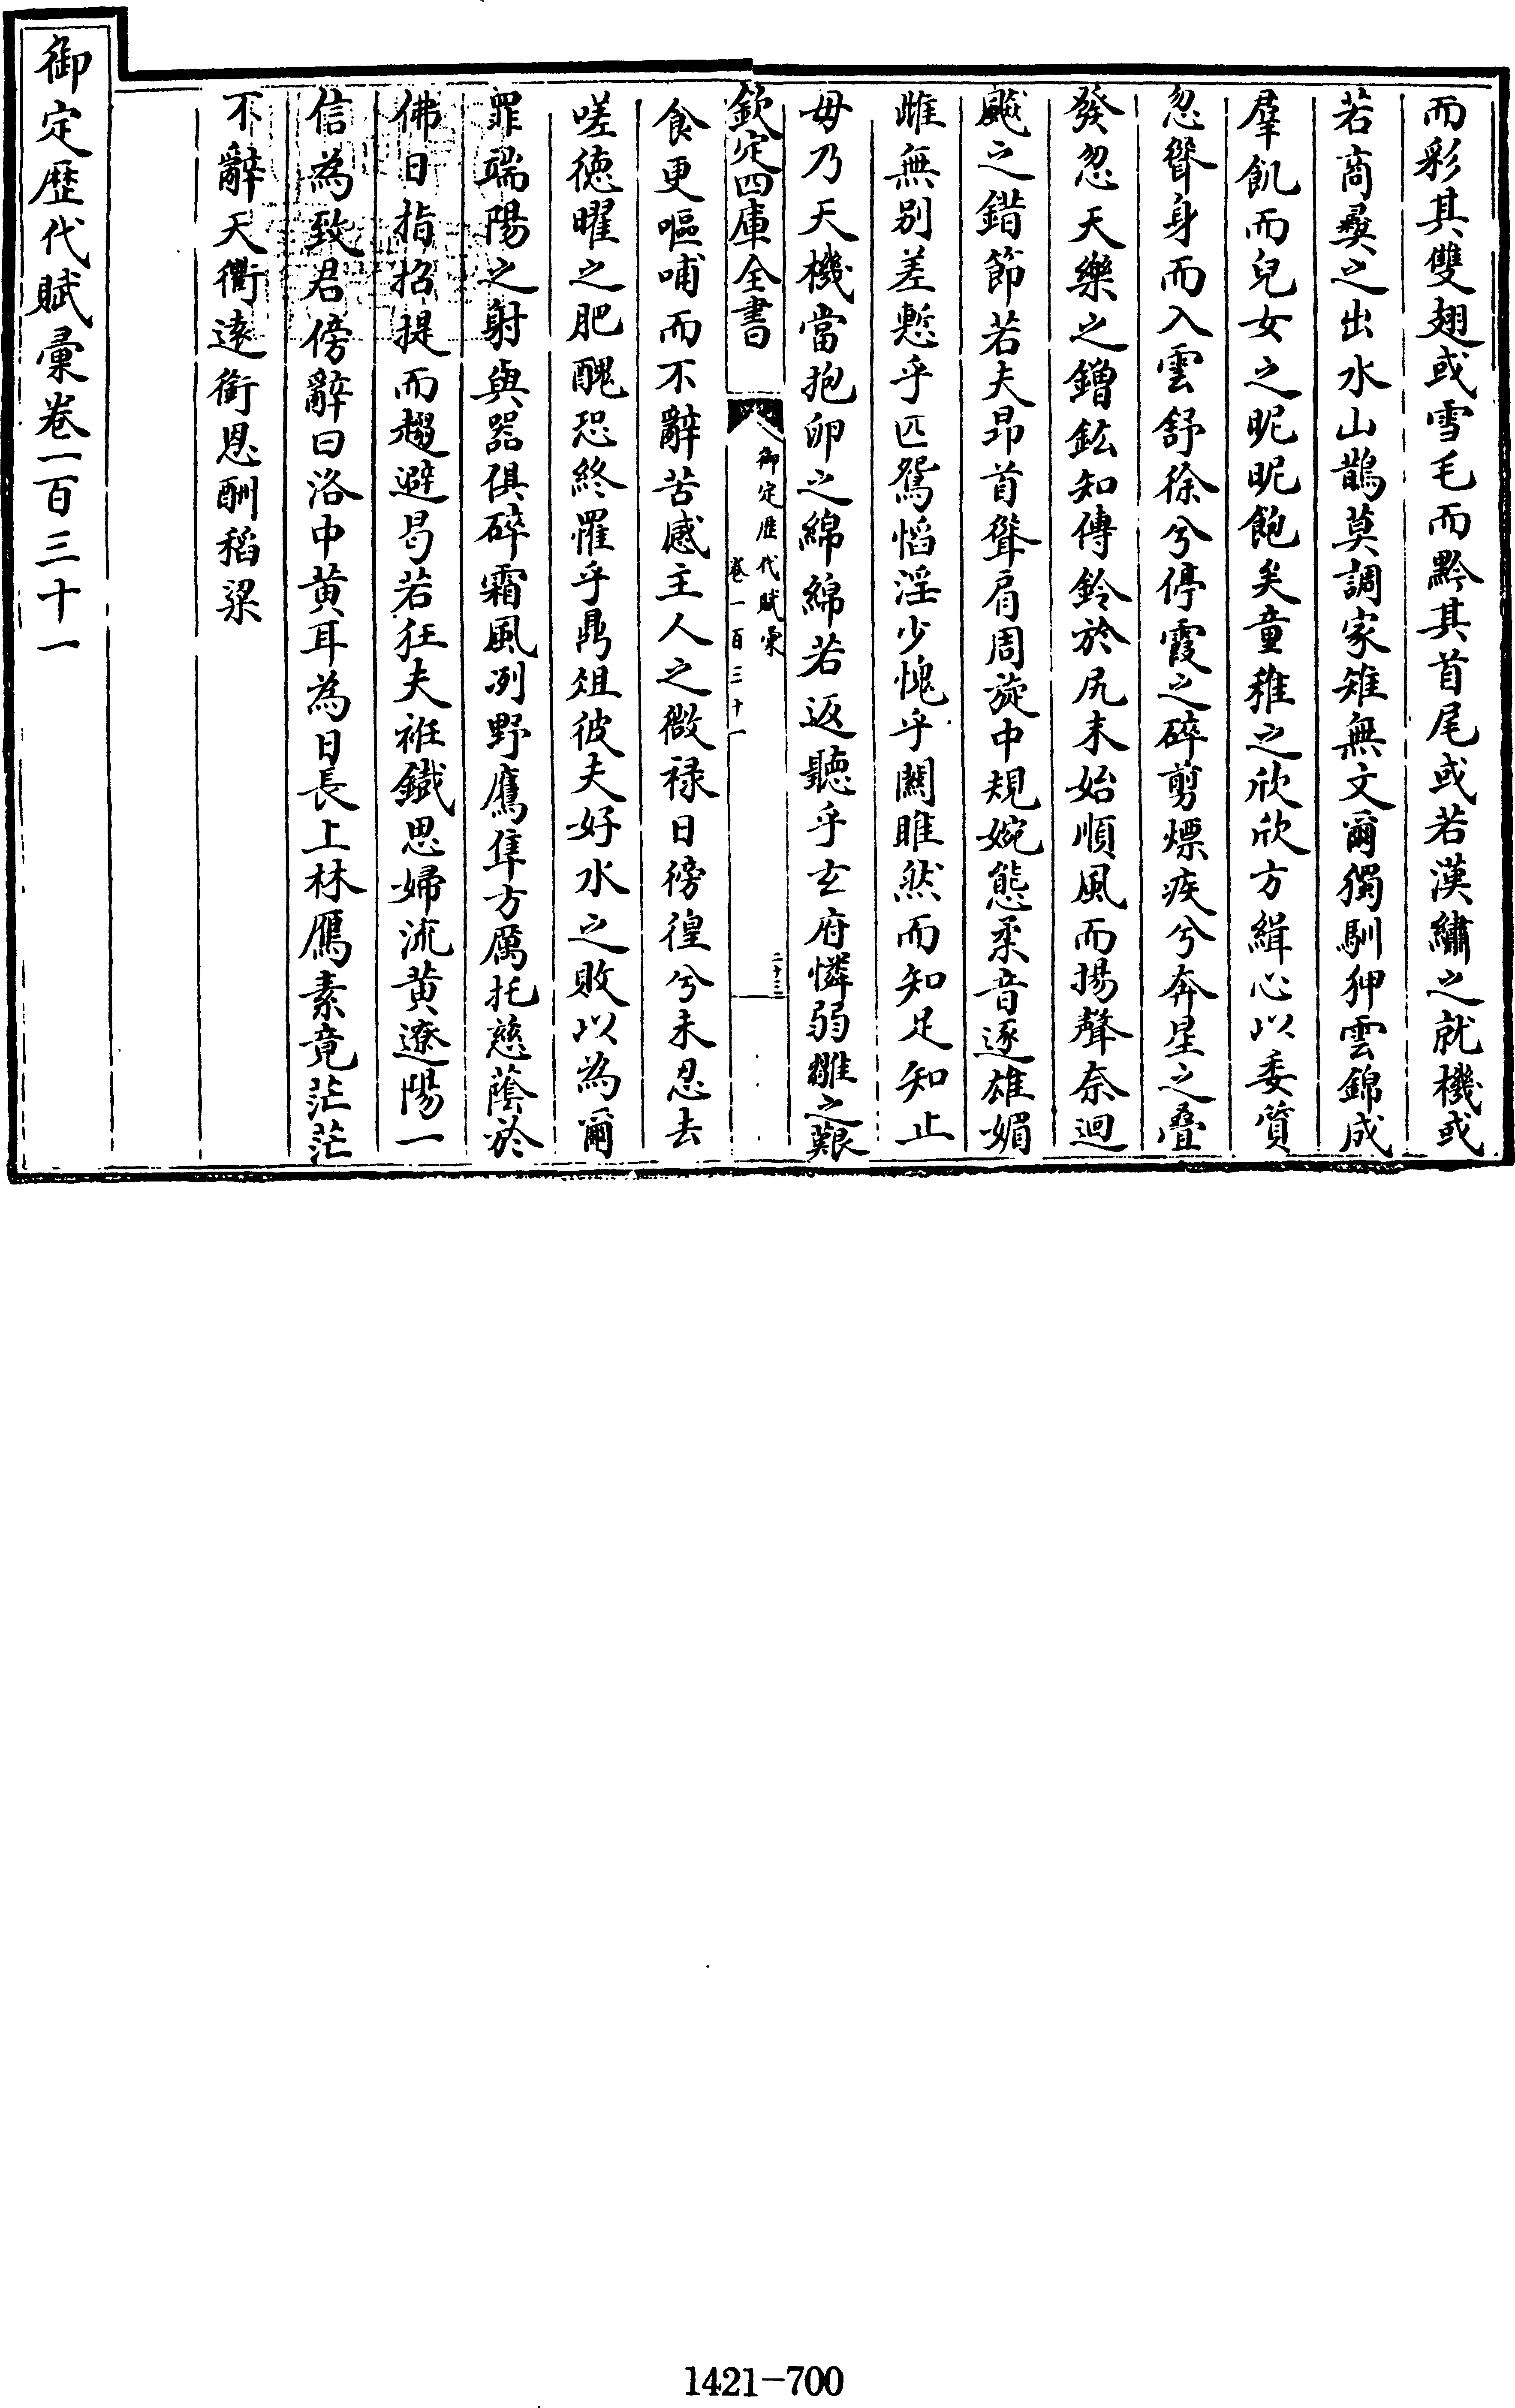 而彩其雙翅或雪毛而黔其首尾或若漢繡之就機或
若商彝之出水山鵲莫調家雉無文爾獨馴狎雲錦成
羣飢而兒女之昵昵飽矣童稚之欣欣方緝心以委質
忽聳身而入雲舒徐兮停霞之碎剪熛疾兮奔星之疊
發忽天樂之鏳鈜知傳鈴於尻末始順風而揚聲奈迴
飇之錯節若夫昂首聳肩周旋中規婉態柔音逐雄媚
雌無别差慙乎匹鴛慆淫少愧乎關雎然而知足知止
毋乃天機當抱卵之綿綿若返聽乎玄府憐弱雛之艱
欽定四庫全書
御定歷代賦彙
卷一百三十一
二十三
食更嘔哺而不辭苦感主人之微禄日徬徨兮未忍去
嗟德曜之肥醜恐終罹乎鼎俎彼夫好水之敗以為爾
罪端陽之射與器俱碎霜風冽野鷹隼方厲托慈蔭於
佛日指招提而趨避曷若狂夫袵鐵思婦流黄遼陽一
信為致君傍辭曰洛中黄耳為日長上林鴈素竟茫茫
不辭天衢逺銜恩酬稻粱
御定歴代賦彙卷一百三十一
1421-700